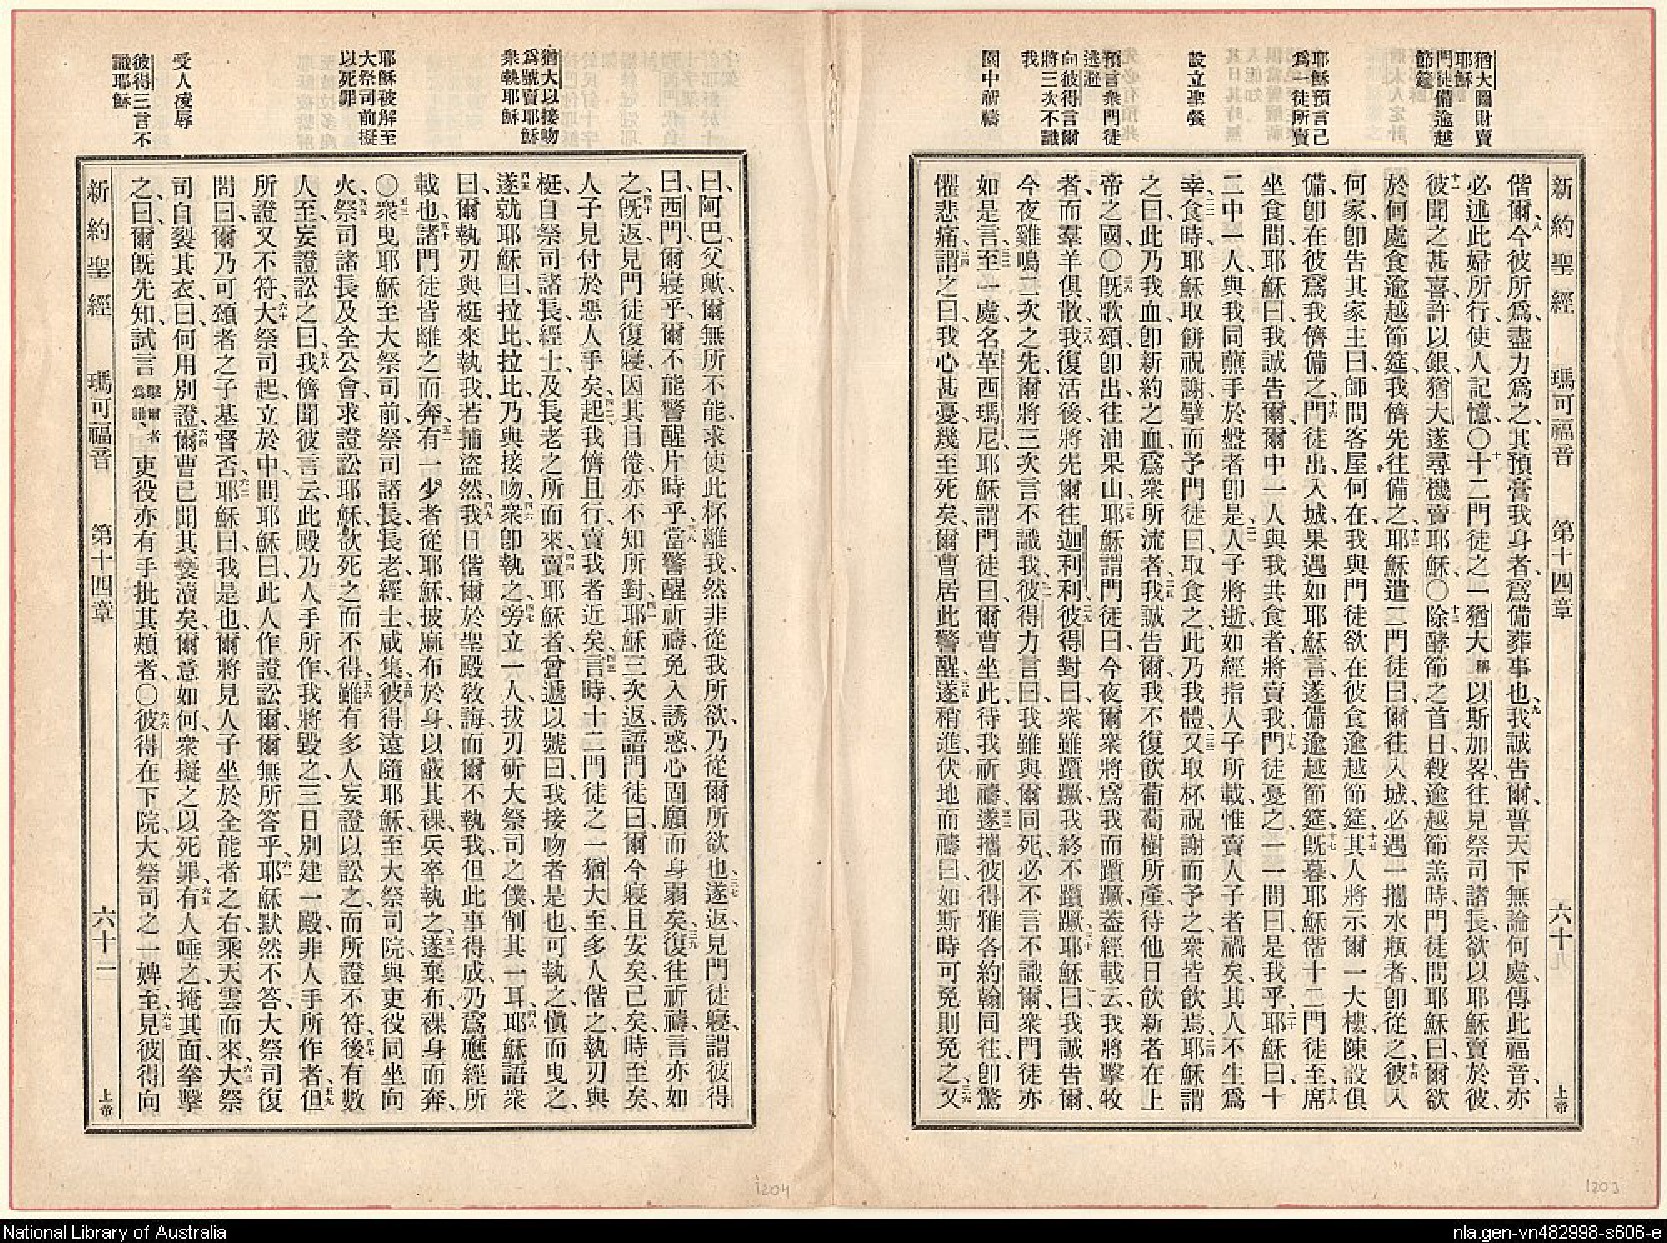 猶大圖財賣
耶穌
門徒備逾越
節筵
耶穌預言己
爲一徒所賣
設立聖餐
預言衆門徒
逃避
向彼得言爾
將三次不識
我
園中祈禱
新約聖經 瑪可福音 第十四章 六十 上帝
偕爾、今彼所爲、盡力爲之、其預膏我身者、爲備葬事也、我誠告爾、普天下無論何處、傳此福音、亦
必述此婦所行、使人記憶、○十二門徒之一猶大稱以斯加畧、往見祭司諸長、欲以耶穌賣於彼、
彼聞之甚喜、許以銀、猶大遂尋機賣耶穌、○除酵節之首日、殺逾越節羔時、門徒問耶穌曰、爾欲
於何處食逾越節筵、我儕先往備之、耶穌遣二門徒曰、爾往入城、必遇一攜水瓶者、卽從之、彼入
何家、卽告其家主曰、師問客屋何在、我與門徒欲在彼食逾越節筵、其人將示爾一大樓、陳設俱
備、卽在彼爲我儕備之、門徒出、入城、果遇如耶穌言、遂備逾越節筵、旣暮、耶穌偕十二門徒至、席
坐食間、耶穌曰、我誠告爾、爾中一人、與我共食者、將賣我、門徒憂之、一一問曰、是我乎、耶穌曰、十
二中一人、與我同蘸手於盤者卽是、人子將逝、如經指人子所載、惟賣人子者禍矣、其人不生爲
幸、食時、耶穌取餅祝謝、擘而予門徒曰、取食之、此乃我體、又取杯祝謝而予之、衆皆飲焉、耶穌謂
之曰、此乃我血、卽新約之血、爲衆所流者、我誠告爾、我不復飲葡萄樹所產、待他日飲新者在上
帝之國、○旣歌頌、卽出、往油果山、耶穌謂門徒曰、今夜爾衆將爲我而躓蹶、蓋經載云、我將擊牧
者、而羣羊俱散、我復活後、將先爾往迦利利、彼得對曰、衆雖躓蹶、我終不躓蹶、耶穌曰、我誠告爾、
今夜雞鳴二次之先、爾將三次言不識我、彼得力言曰、我雖與爾同死、必不言不識爾、衆門徒亦
如是言、至一處、名革西瑪尼、耶穌謂門徒曰、爾曹坐此、待我祈禱、遂攜彼得雅各約翰同往、卽驚
懼悲痛、謂之曰、我心甚憂、幾至死矣、爾曹居此警醒、遂稍進伏地而禱曰、如斯時可免則免之、又
猶大以接吻
爲號賣耶穌
衆執耶穌
耶穌被解至
大祭司前擬
以死罪
受人凌辱
彼得三言不
識耶穌
曰、阿巴父歟、爾無所不能、求使此杯離我、然非從我所欲、乃從爾所欲也、遂返、見門徒寢、謂彼得
曰、西門、爾寢乎、爾不能警醒片時乎、當警醒祈禱、免入誘惑、心固願而身弱矣、復往祈禱、言亦如
之、旣返、見門徒復寢、因其目倦、亦不知所對、耶穌三次返、語門徒曰、爾今寢且安矣、已矣、時至矣、
人子見付於惡人手矣、起、我儕且行、賣我者近矣、言時、十二門徒之一猶大至、多人偕之、執刃與
梃、自祭司諸長、經士、及長老之所而來、賣耶穌者、曾遞以號曰、我接吻者是也、可執之、愼而曳之、
遂就耶穌曰、拉比、拉比、乃與接吻、衆卽執之、旁立一人、拔刃斫大祭司之僕、削其一耳、耶穌語衆
曰、爾執刃與梃來執我、若捕盜然、我日偕爾於聖殿敎誨、而爾不執我、但此事得成、乃爲應經所
載也、諸門徒皆離之而奔、有一少者從耶穌、披麻布於身、以蔽其裸、兵卒執之、遂棄布裸身而奔、
○衆曳耶穌至大祭司前、祭司諸長、長老、經士、咸集、彼得遠隨耶穌、至大祭司院、與吏役同坐向
火、祭司諸長、及全公會、求證訟耶穌、欲死之而不得、雖有多人妄證以訟之、而所證不符、後有數
人至、妄證訟之曰、我儕聞彼言云、此殿乃人手所作、我將毀之、三日別建一殿、非人手所作者、但
所證又不符、大祭司起、立於中、問耶穌曰、此人作證訟爾、爾無所答乎、耶穌默然不答、大祭司復
問曰、爾乃可頌者之子基督否、耶穌曰、我是也、爾將見人子坐於全能者之右、乘天雲而來、大祭
司自裂其衣、曰、何用別證、爾曹已聞其褻瀆矣、爾意如何、衆擬之以死罪、有人唾之、掩其面、拳擊
之、曰、爾旣先知、試言擊爾者爲誰、吏役亦有手批其頰者、○彼得在下院、大祭司之一婢至、見彼得向
新約聖經 瑪可福音 第十四章 六十一 上帝
1204
1203
National Library of Australia
nla.gen-vn482998-s606-e